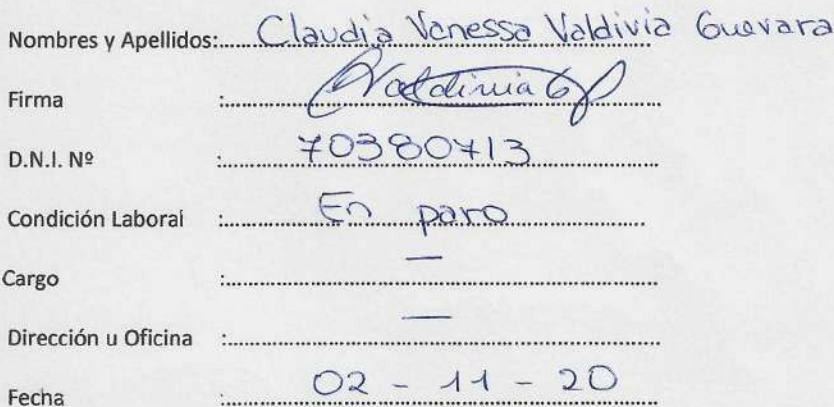 Nombres y Apellidos:..... Claudia Vanessa Valdivia Guevara
Firma :..... Valdivia G
D.N.I. Nº :..... 70380713
Condición Laboral :..... En paro
Cargo :..... —
Dirección u Oficina :..... —
Fecha :..... 02 - 11 - 20